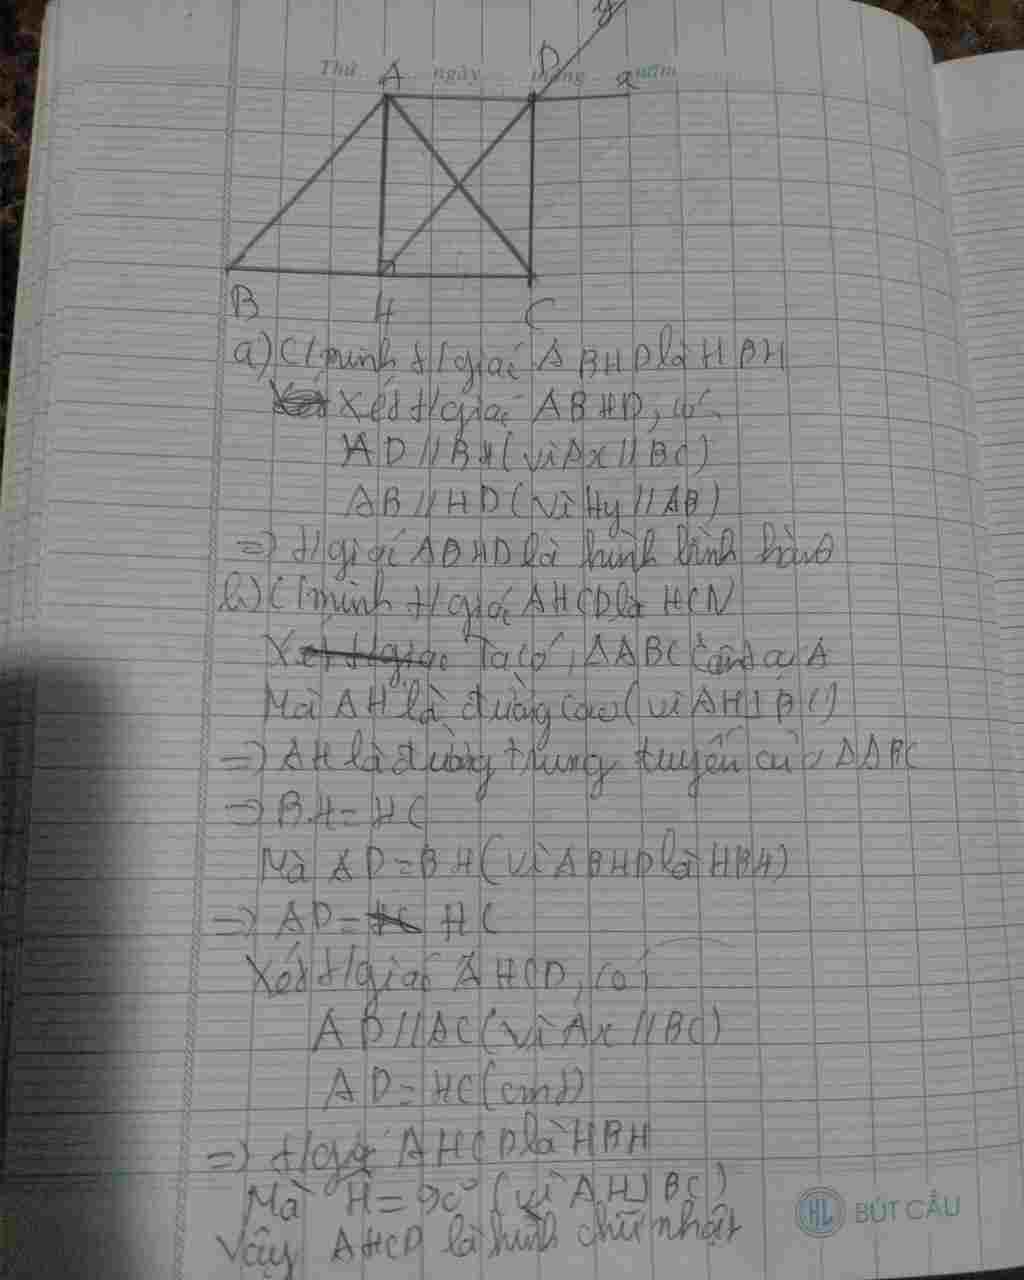 y
Thứ ngày tháng năm
A D x
B H C
a) C/minh t/giác ABHD là HBH
Xét t/giác ABHD, có
AD // BH (vì Ax // BC)
AB // HD (vì Hy // AB)
=> t/giác ABHD là hình bình hành
b) C/minh t/giác AHCD là HCN
Ta có, ΔABC cân tại A
Mà AH là đường cao (vì AH ⊥ BC)
=> AH là đường trung tuyến của ΔABC
=> BH = HC
Mà AD = BH (vì ABHD là HBH)
=> AD = HC
Xét t/giác AHCD, có
AD // AC (vì Ax // BC)
AD = HC (cmt)
=> t/giác AHCD là HBH
Mà Ĥ = 90° (vì AH ⊥ BC)
Vậy AHCD là hình chữ nhật
HL BÚT CẦU